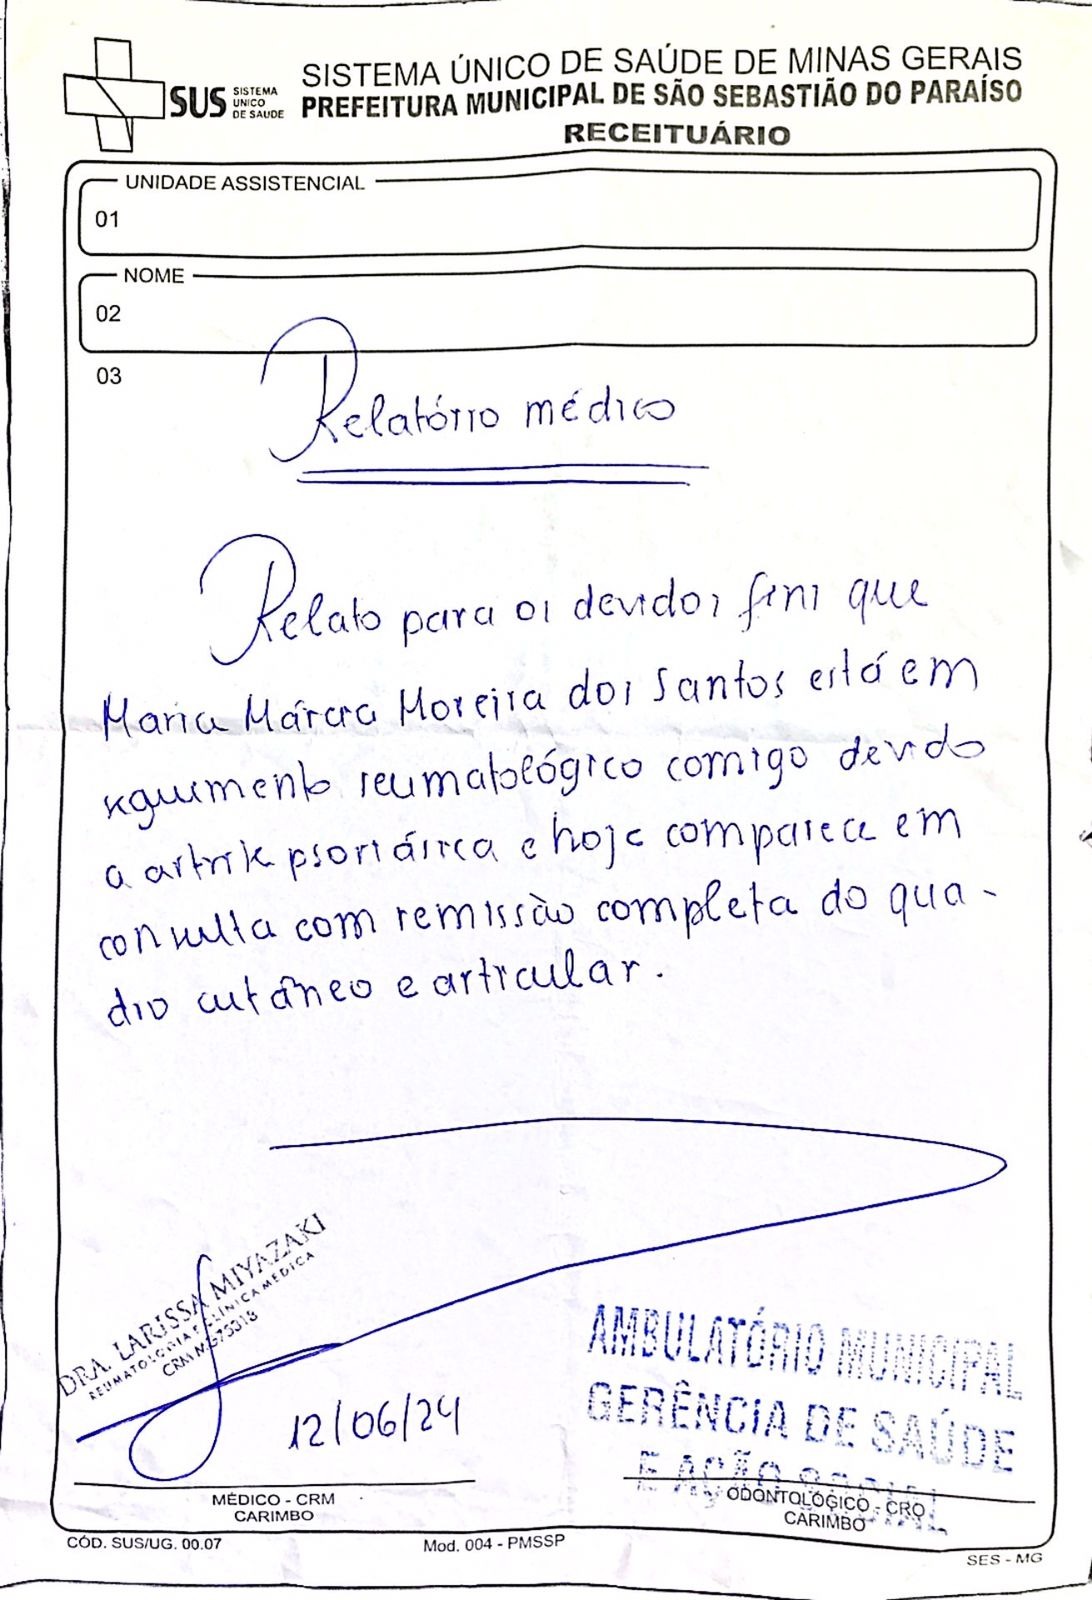 SUS SISTEMA ÚNICO DE SAÚDE
SISTEMA ÚNICO DE SAÚDE DE MINAS GERAIS
PREFEITURA MUNICIPAL DE SÃO SEBASTIÃO DO PARAÍSO
RECEITUÁRIO
UNIDADE ASSISTENCIAL
01
NOME
02
03
Relatório médico
Relato para os devidos fins que
Maria Márcia Moreira dos Santos está em
seguimento reumatológico comigo devido
a artrite psoriásica e hoje comparece em
consulta com remissão completa do qua-
dro cutâneo e articular.
DRA. LARISSA MIYAZAKI
REUMATOLOGIA E CLÍNICA MÉDICA
CRM MG 73318
12/06/24
AMBULATÓRIO MUNICIPAL
GERÊNCIA DE SAÚDE
E AÇÃO SOCIAL
MÉDICO - CRM
CARIMBO
ODONTOLÓGICO - CRO
CARIMBO
CÓD. SUS/UG. 00.07
Mod. 004 - PMSSP
SES - MG